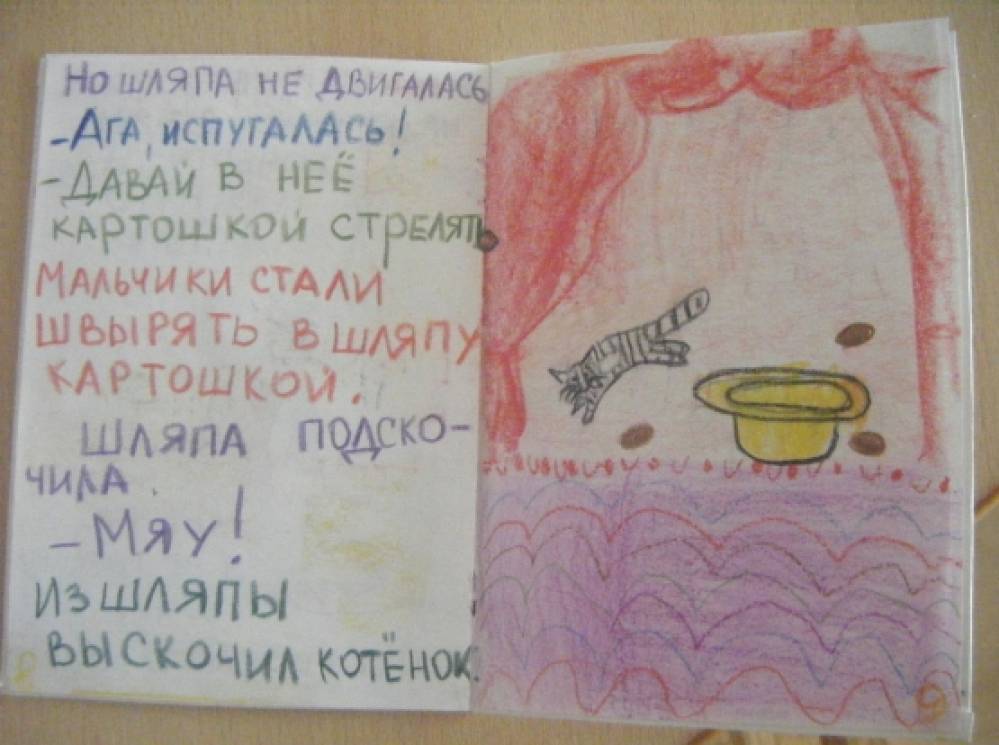 Но шляпа не двигалась
-Ага, испугалась!
-Давай в неё
картошкой стрелять
Мальчики стали
швырять в шляпу
картошкой.
Шляпа подско-
чила.
-Мяу!
Из шляпы
выскочил котёнок.
8
9